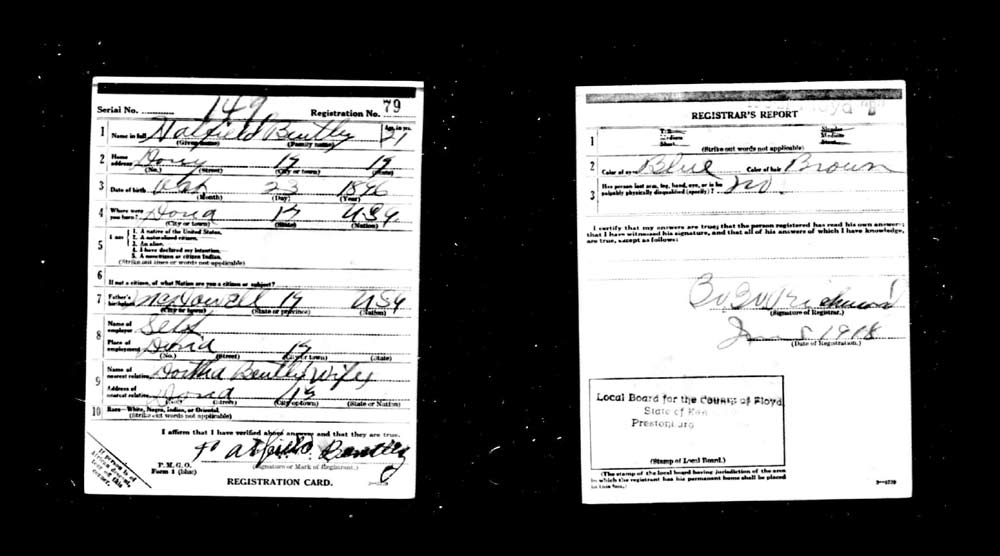 Serial No. 149 Registration No. 79
1 Name in full Hatfield Bentley Age in yrs. 21
(Given name) (Family name)
2 Home address Ky
(No.) (Street) (City or town) (State)
3 Date of birth Oct 23 1896
(Month) (Day) (Year)
4 Where were you born? Ky USA
(City or town) (State) (Nation)
5 I am 1. A native of the United States.
2. A naturalized citizen.
3. An alien.
4. I have declared my intention.
5. A noncitizen or citizen Indian.
(Strike out lines or words not applicable)
6 If not a citizen, of what Nation are you a citizen or subject?
7 Father's birthplace McDowell Ky USA
(City or town) (State or province) (Nation)
8 Name of employer Self
Place of employment Ky
(No.) (Street) (City or town) (State)
9 Name of nearest relative Bentley Wife
Address of nearest relative Ky
(No.) (Street) (City or town) (State or Nation)
10 Race—White, Negro, Indian, or Oriental.
(Strike out words not applicable)
I affirm that I have verified above answers and that they are true.
Hatfield Bentley
(Signature or Mark of Registrant.)
P. M. G. O.
Form 1 (blue)
REGISTRATION CARD.
If person is of African descent, tear off this corner.
REGISTRAR'S REPORT
1 Tall Slender
Medium Medium
Short Stout
(Strike out words not applicable)
2 Color of eyes Blue Color of hair Brown
3 Has person lost arm, leg, hand, eye, or is he palpably physically disqualified (specify)? No.
I certify that my answers are true; that the person registered has read his own answers;
that I have witnessed his signature, and that all of his answers of which I have knowledge,
are true, except as follows:
Richmond
(Signature of Registrar.)
June 5 1918
(Date of Registration.)
Local Board for the County of Floyd
State of Ken
Prestonburg
(Stamp of Local Board.)
(The stamp of the local board having jurisdiction of the area
in which the registrant has his permanent home shall be placed
in this box.)